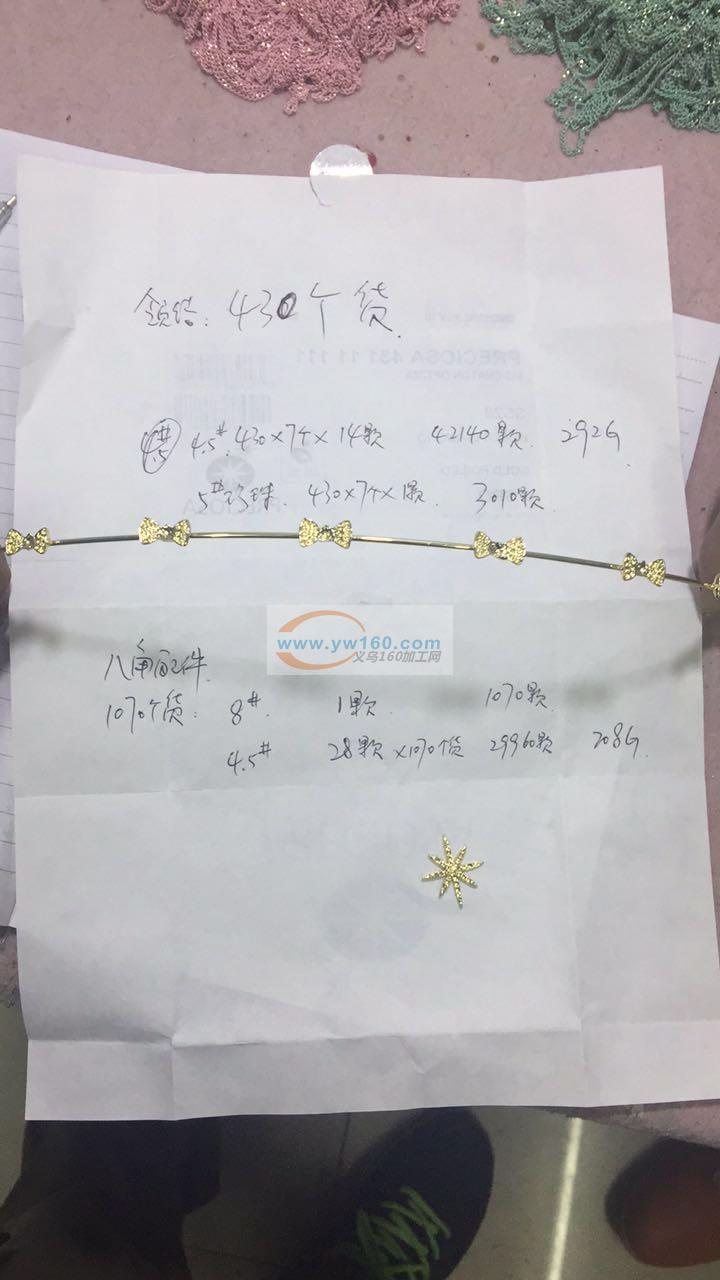 领结：430个货.
4.5# 4.5# 430×7个×14颗 42140颗. 292G
5#珍珠. 430×7个×1颗. 3010颗.
www.yw160.com
义乌160加工网
八角配件.
1070个货： 8# 1颗 1070颗.
4.5# 28颗×1070个货 29960颗 208G.